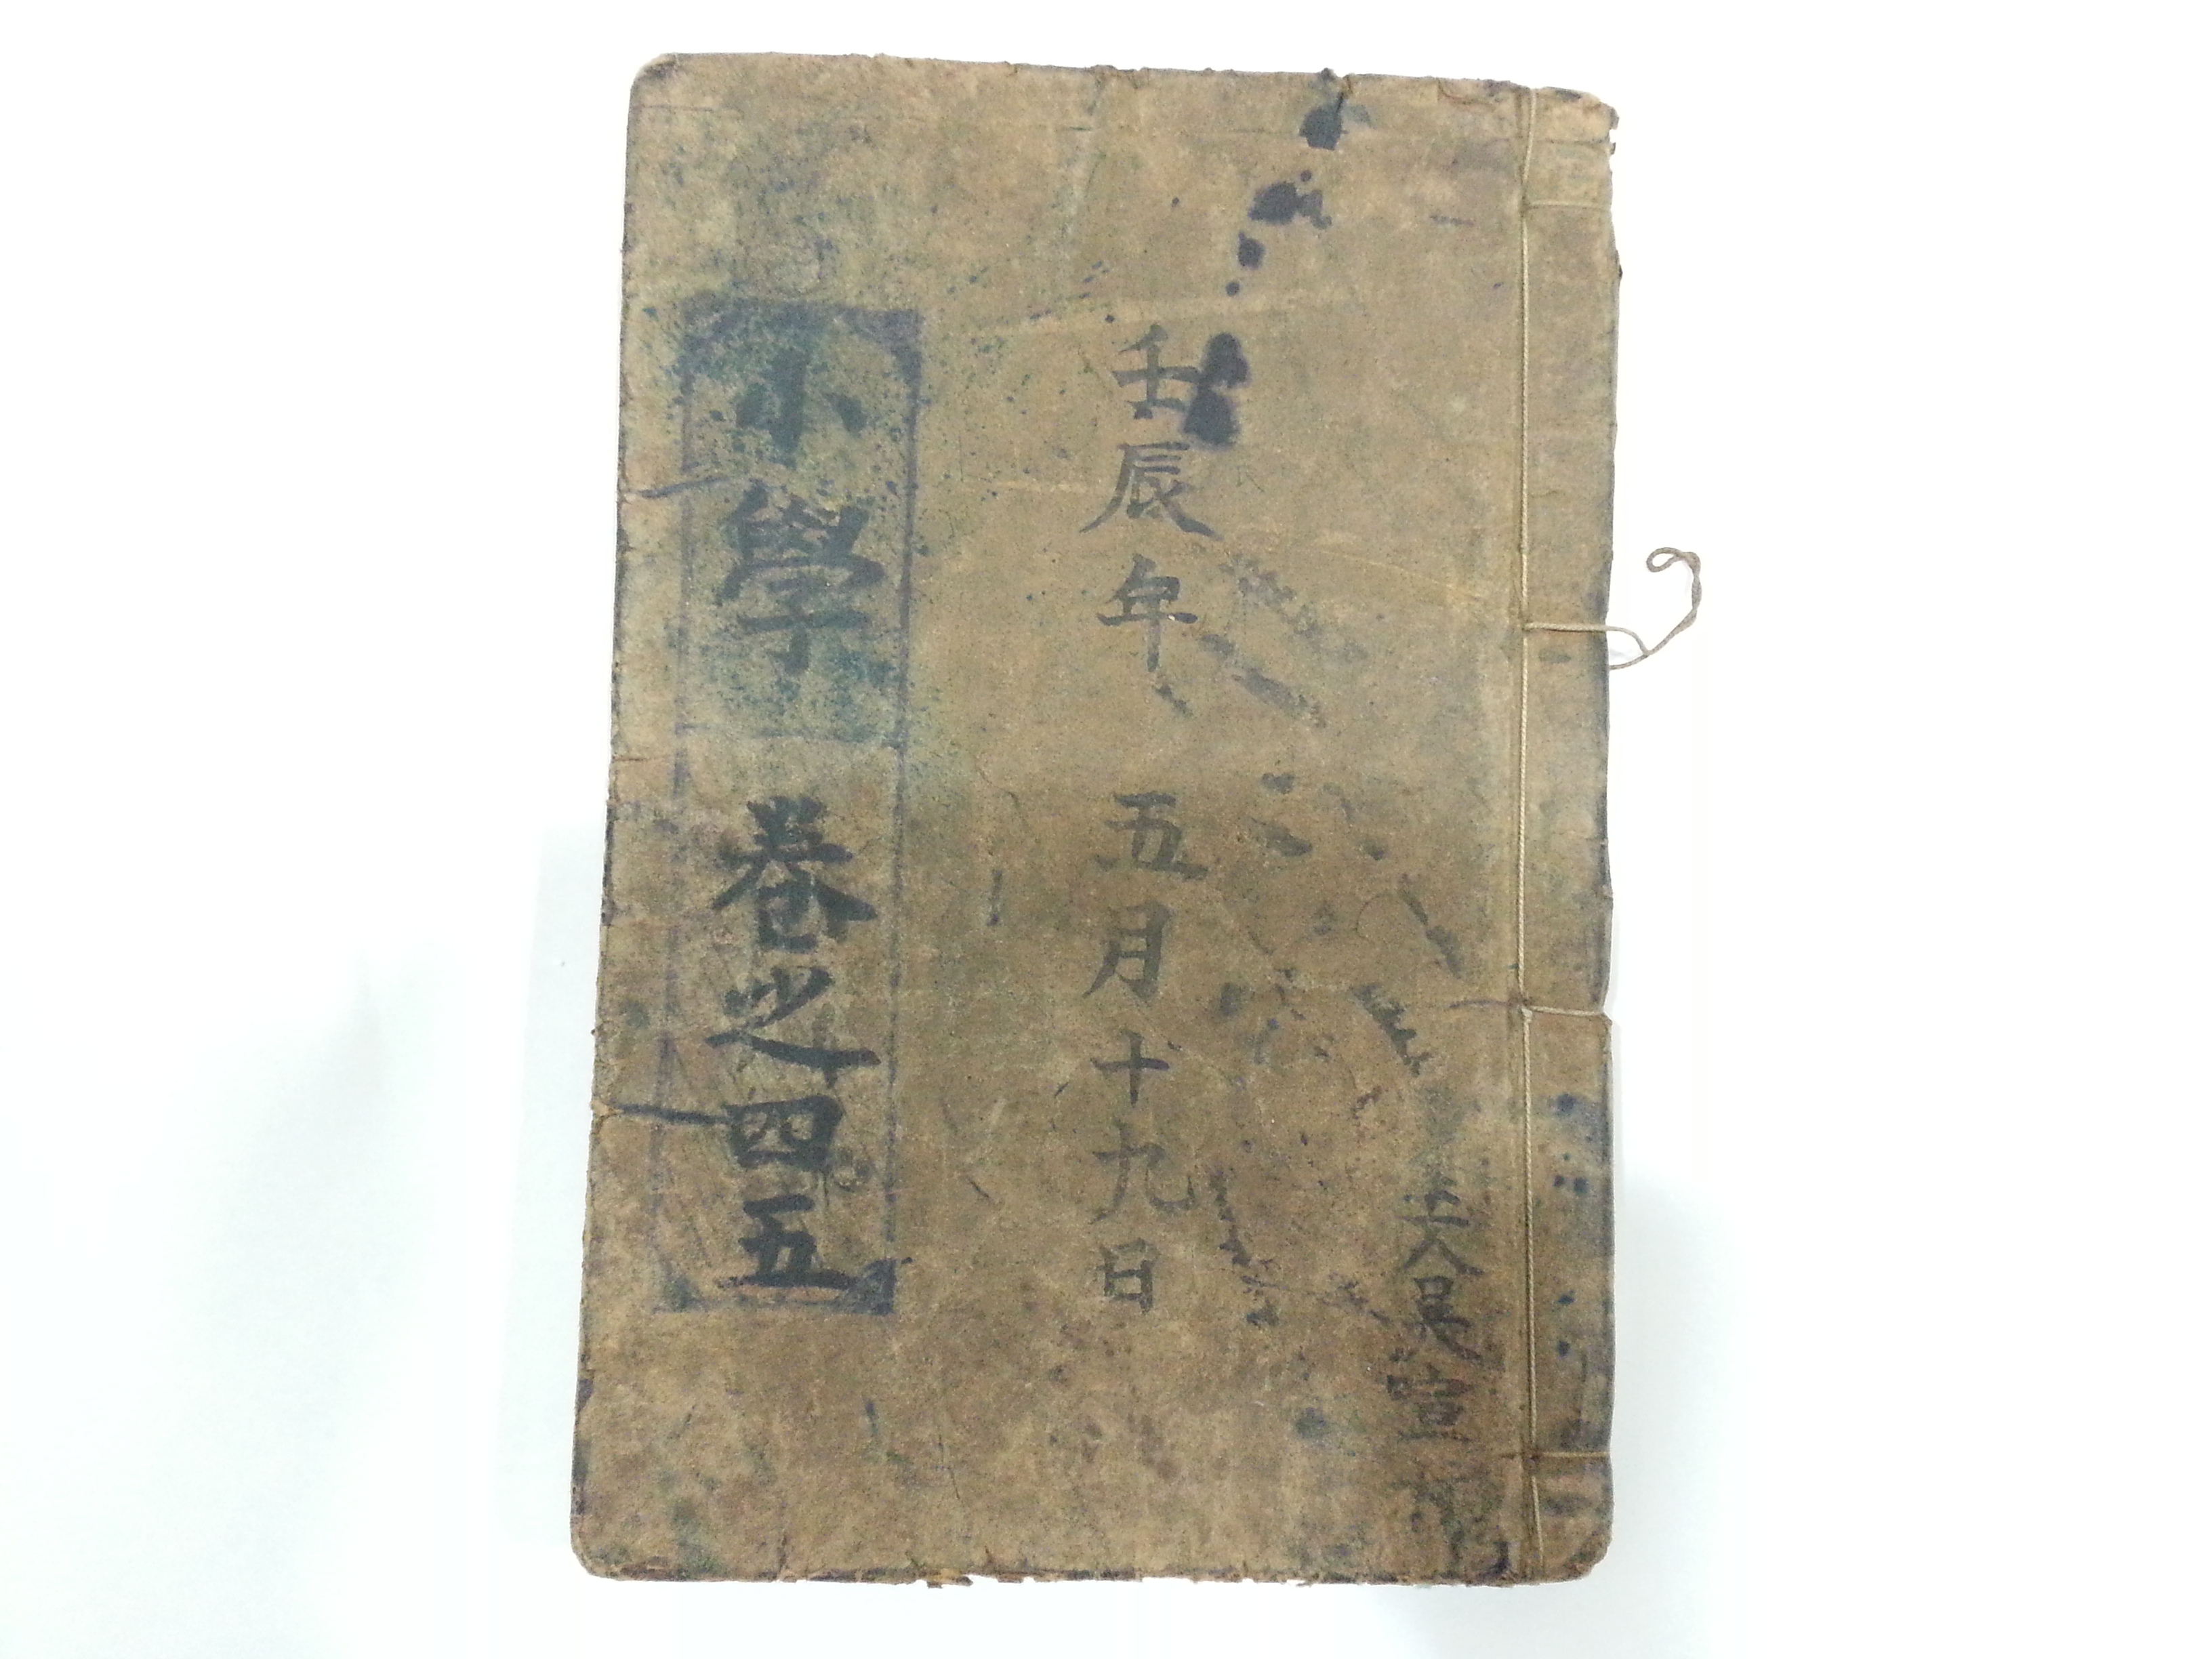 主人吳宣
壬辰年 五月十九日
小學 卷之四五